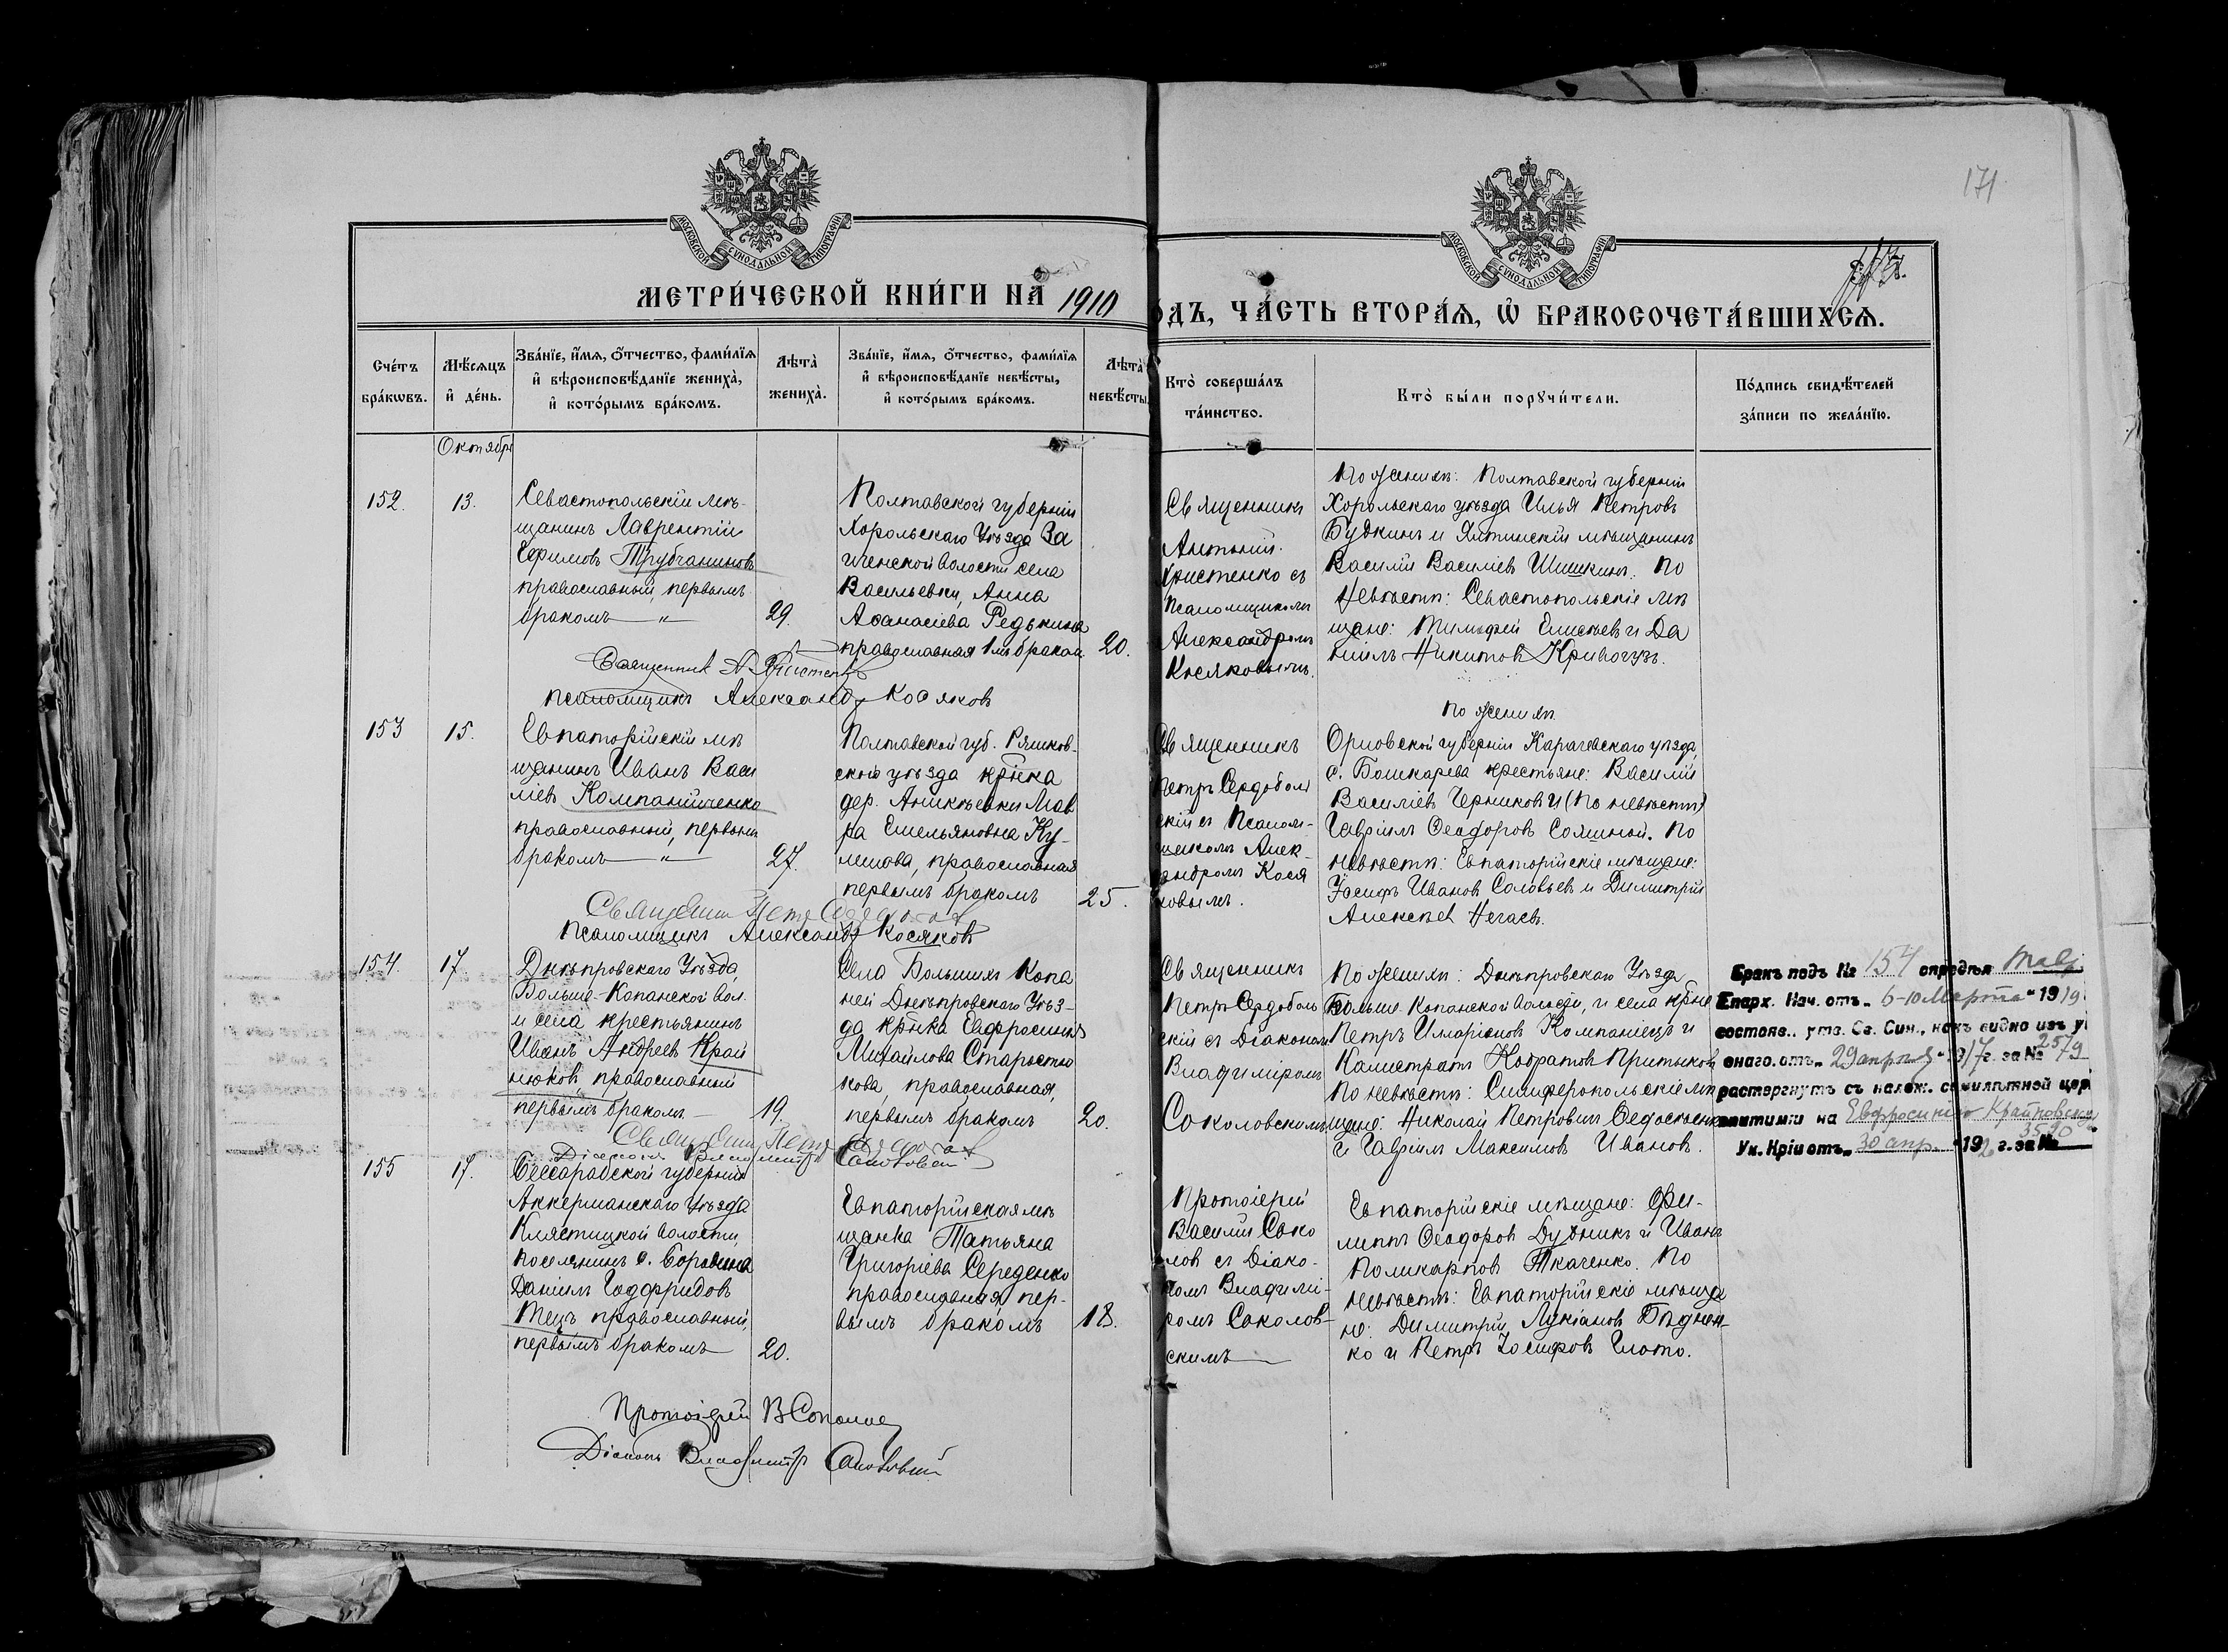 171
МОСКОВСКОЙ СУНОДАЛЬНОЙ ТИПОГРАФІИ
МОСКОВСКОЙ СУНОДАЛЬНОЙ ТИПОГРАФІИ
МЕТРИ́ЧЕСКОЙ КНИ́ГИ НА 1910
ОДЪ, ЧА́СТЬ ВТОРА́Я, Ѿ БРАКОСОЧЕТА́ВШИХСЯ.
Сче́тъ бра́кѡвъ.
Мѣ́сяцъ и҆ де́нь.
Зва́нїе, и҆́мя, ѻ҆́тчество, фами́лїя
и҆ вѣроисповѣ́данїе жениха̀,
и҆ кото́рымъ бра́комъ.
Лѣта̀ жениха̀.
Зва́нїе, и҆́мя, ѻ҆́тчество, фами́лїя
и҆ вѣроисповѣ́данїе невѣ́сты,
и҆ кото́рымъ бра́комъ.
Лѣта̀ невѣ́сты
Кто̀ соверша́лъ
та́инство.
Кто̀ бы́ли порꙋчи́тели.
По́дпись свидѣ́телей
за́писи по жела́нїю.
Октябрь
152.
13.
Севастопольскій мѣ-
щанинъ Лаврентій
Ефимовъ Трубчаниновъ
православный, первымъ
бракомъ — „ —
29.
Полтавской губерніи
Хорольскаго Уѣзда За
иченской волости села
Васильевки, Анна
Аѳанасіева Редькина
православная 1мъ бракомъ
20.
Священникъ
Антоній
Христенко съ
Псаломщикомъ
Александромъ
Косяковымъ.
По женихѣ: Полтавской губерніи
Хорольскаго уѣзда Илья Петровъ
Будкинъ и Ялтинскій мѣщанинъ
Василій Василіевъ Шишкинъ. По
Невѣстѣ: Севастопольскіе мѣ
щане: Тимофей Елисѣевъ и Да
ніилъ Никитовъ Кривогузъ.
Священникъ А. Христенко
Псаломщикъ Александръ Косяковъ
153
15.
Евпаторійскій мѣ
щанинъ Иванъ Васи
ліевъ Компанійченко
православный, первымъ
бракомъ — „ —
27.
Полтавской губ.
скаго уѣзда крⷭ҇нка
дер. Аникѣевки Мав
ра Емельяновна Ку-
лешова, православная
первымъ бракомъ
25.
Священникъ
Петръ Сердоболь
скій съ Псалом-
щикомъ Алек-
сандромъ Кося
ковымъ.
По женихѣ
Орловской губерніи Карачевскаго уѣзда,
с. Бошкарева крестьяне: Василій
Василіевъ Черниковъ и (по невѣстѣ)
Гавріилъ Ѳеодоровъ Соляной. По
невѣстѣ: Евпаторійскіе мѣщане:
Іосифъ Ивановъ Соловьевъ и Димитрій
Алексѣевъ Нечаевъ.
Священникъ Петръ Сердобольскій
Псаломщикъ Александръ Косяковъ
154.
17.
Днѣпровскаго Уѣзда,
Больше-Копанской вол.
и села крестьянинъ
Иванъ Андреевъ Край
нюковъ, православный
первымъ бракомъ. —
19.
Села Большихъ Копа
ней Днѣпровскаго Уѣз-
да крⷭ҇нка Евфросинія
Михайлова Старостен
кова, православная,
первымъ бракомъ
20.
Священникъ
Петръ Сердоболь
скій съ Діакономъ
Владиміромъ
Соколовскимъ
По женихѣ: Днѣпровскаго Уѣзда
Больше-Копанской Волости, и села крⷭ҇не
Петръ Иларіоновъ Компаніецъ и
Калистратъ Кодратовъ Притыковъ
По невѣстѣ: Симферопольскіе мѣ
щане: Николай Петровичъ Ѳедосѣенко
и Гавріилъ Максимовъ Ивановъ.
Бракъ подъ № 154 опредѣл Тавр.
Епарх. Нач. отъ „6-10 Марта" 19
состояв., утв. Св. Син., какъ видно изъ у
онаго, отъ „29 апрѣля" 1917 г. за № 2579
расторгнутъ съ налож. семилѣтной цер
епитиміи на Евфросинію
Ук. К-ріи отъ „30 апр." 19 г. за № 3520
Священникъ Петръ Сердобольскій
Діаконъ Владиміръ Соколовскій
155
17.
Бессарабской губерніи
Аккерманскаго Уѣзда
Клястицкой волости,
поселянинъ с. Бородина
Даніилъ Годфридовъ
Мецъ православный,
первымъ бракомъ —
20.
Евпаторійская мѣ
щанка Татьяна
Григоріева Середенко
православная, пер-
вымъ бракомъ
18.
Протоіерей
Василій Соко
ловъ съ Діако-
номъ Владимі-
ромъ Соколов-
скимъ —
Евпаторійскіе мѣщане: Фи-
липпъ Ѳеодоровъ Дудникъ и Иванъ
Поликарповъ Ткаченко. По
невѣстѣ: Евпаторійскіе мѣща
не: Димитрій Лукіановъ Бѣднен-
ко и Петръ Іосифовъ Глото.
Протоіерей В Соколовъ
Діаконъ Владиміръ Соколовскій